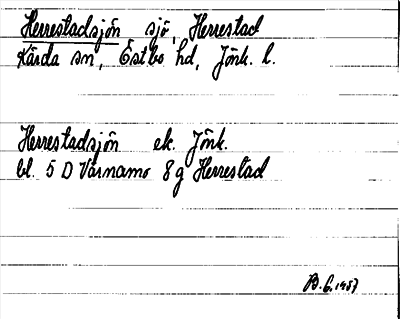 Herrestadsjön sjö, Herrestad
Kärda sn, Östbo hd, Jönk. l.
Herrestadsjön ek. Jönk.
bl. 5 D Värnamo 8g Herrestad
B. G. 1957